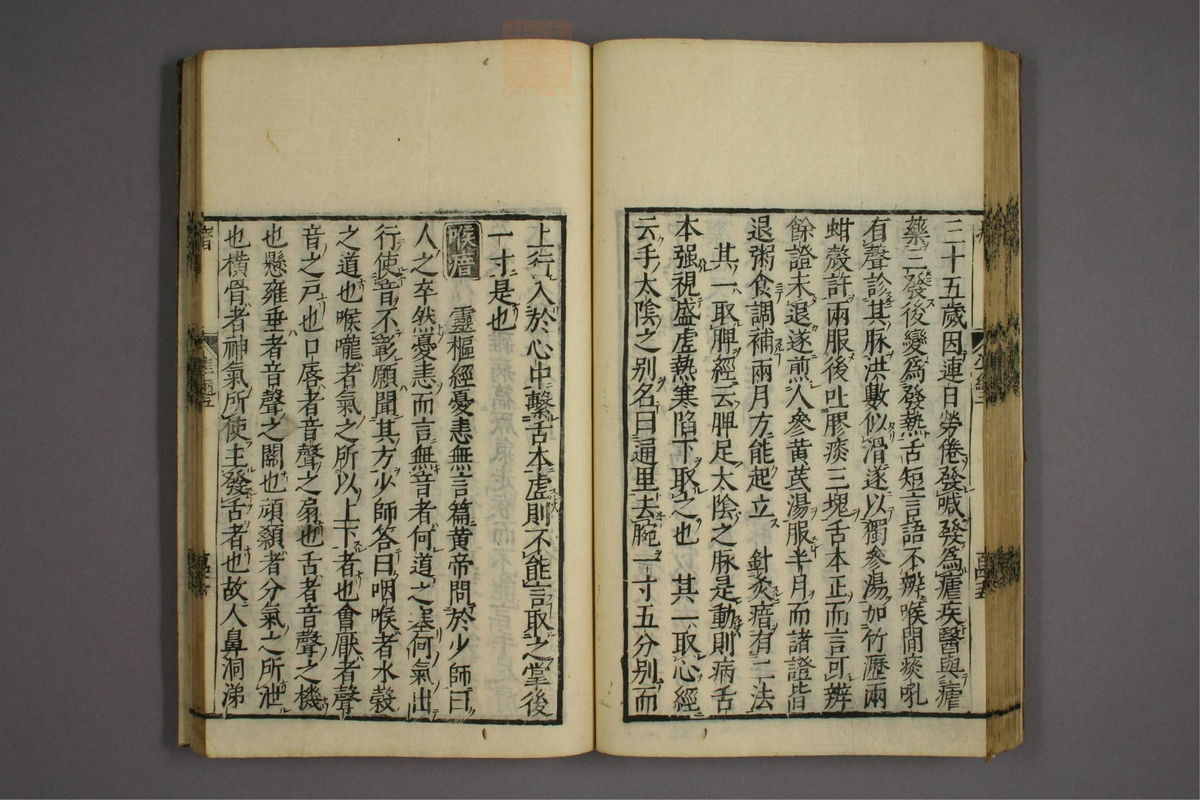 三十五歲因連日勞倦發喊發為瘧疾醫與瘧
藥三發後變為發熱舌短言語不辨喉間痰吼
有聲診其脉洪數似滑遂以獨參湯加竹瀝兩
蚶殼許兩服後吐膠痰三塊舌本正而言可辨
餘證未退遂煎人參黃芪湯服半月而諸證皆
退粥食調補兩月方能起立　針灸瘖有二法
其一取脾經云脾足太陰之脉是動則病舌
本强視盛虛熱寒陷下取之也　其一取心經
云手太陰之别名曰通里去腕一寸五分别而
上行入於心中繫舌本虛則不能言取之掌後
一寸是也
喉瘖　靈樞經憂恚無言篇黃帝問於少師曰
人之卒然憂恚而言無音者何道之塞何氣出
行使音不彰願聞其方少師答曰咽喉者水穀
之道也喉嚨者氣之所以上下者也會厭者聲
音之戸也口唇者音聲之扇也舌者音聲之機
也懸雍垂者音聲之關也頏顙者分氣之所泄
也橫骨者神氣所使主發舌者也故人鼻洞涕